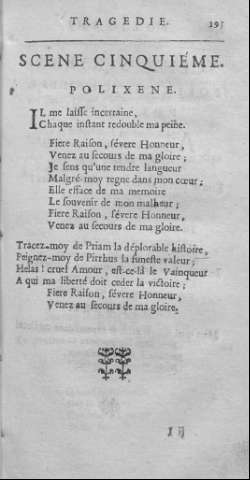 TRAGEDIE. 195
SCENE CINQUIÉME.
POLIXENE.
IL me laisse incertaine,
Chaque instant redouble ma peine.
Fiere Raison, sévere Honneur,
Venez au secours de ma gloire;
Je sens qu'une tendre langueur
Malgré-moy regne dans mon cœur;
Elle efface de ma memoire
Le souvenir de mon malheur;
Fiere Raison, sévere Honneur,
Venez au secours de ma gloire.
Tracez-moy de Priam la déplorable histoire,
Peignez-moy de Pirrhus la funeste valeur;
Helas! cruel Amour, est-ce-là le Vainqueur
A qui ma liberté doit ceder la victoire;
Fiere Raison, sévere Honneur,
Venez au secours de ma gloire.
I ij